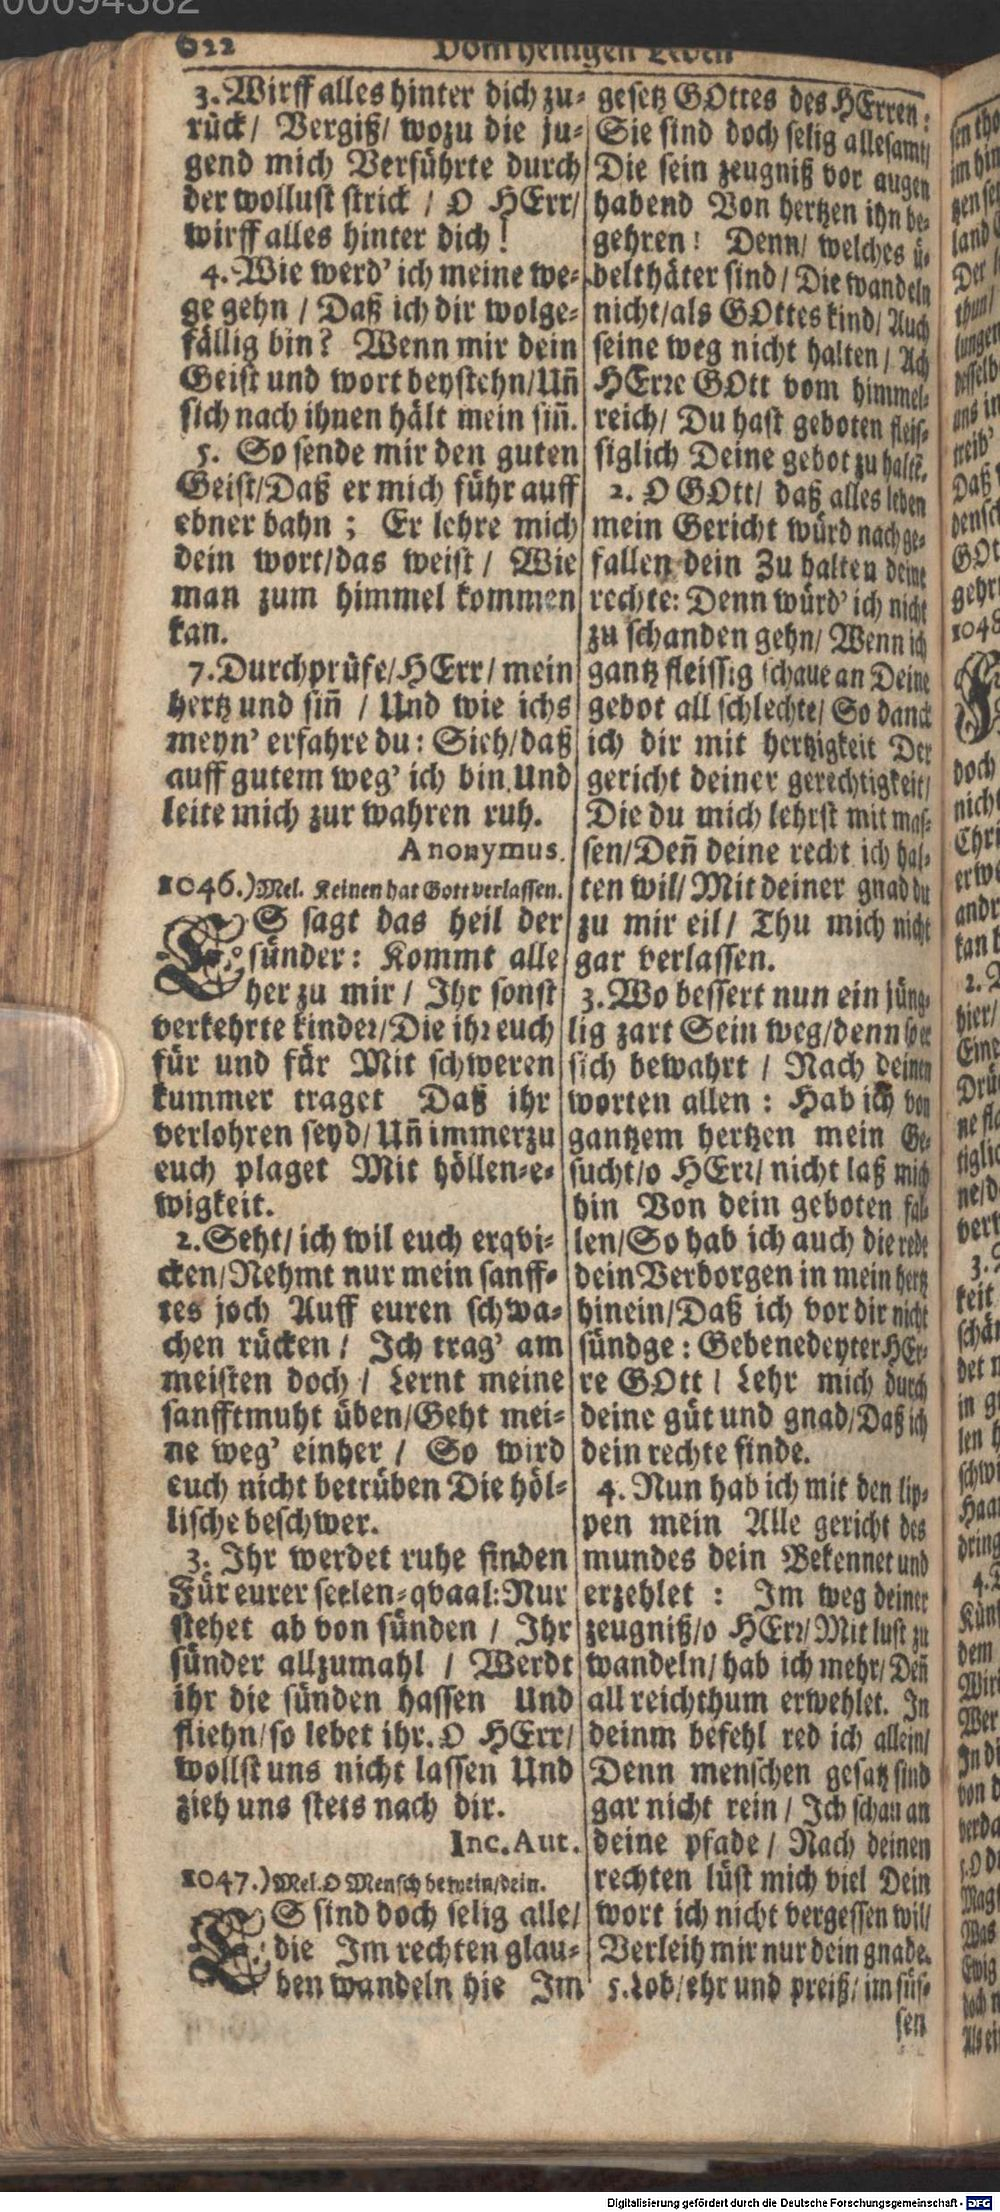 00094382
622 Vom heiligen Leben
3. Wirff alles hinter dich zu-
rück/ Vergiß/ wozu die ju-
gend mich Verführte durch
der wollust strick / O HErr/
wirff alles hinter dich!
4. Wie werd' ich meine we-
ge gehn / Daß ich dir wolge-
fällig bin? Wenn mir dein
Geist und wort beystehn/Uñ
sich nach ihnen hält mein siñ.
5. So sende mir den guten
Geist/Daß er mich führ auff
ebner bahn ; Er lehre mich
dein wort/das weist / Wie
man zum himmel kommen
kan.
7. Durchprüfe/HErr/ mein
hertz und siñ / Und wie ichs
meyn' erfahre du: Sieh/daß
auff gutem weg' ich bin Und
leite mich zur wahren ruh.
Anonymus.
1046.) Mel. Keinen hat Gott verlassen.
ES sagt das heil der
sünder: Kommt alle
her zu mir / Ihr sonst
verkehrte kinder/Die ihr euch
für und für Mit schweren
kummer traget Daß ihr
verlohren seyd/Uñ immerzu
euch plaget Mit höllen-e-
wigkeit.
2. Seht/ ich wil euch erqvi-
cken/Nehmt nur mein sanff-
tes joch Auff euren schwa-
chen rücken / Ich trag' am
meisten doch / Lernt meine
sanfftmuht üben/Geht mei-
ne weg' einher / So wird
euch nicht betrüben Die höl-
lische beschwer.
3. Ihr werdet ruhe finden
Für eurer seelen-qvaal: Nur
stehet ab von sünden / Ihr
sünder allzumahl / Werdt
ihr die sünden hassen Und
fliehn/so lebet ihr. O HErr/
wollst uns nicht lassen Und
zieh uns stets nach dir.
Inc. Aut.
1047.) Mel. O Mensch bewein/dein.
ES sind doch selig alle/
die Im rechten glau-
ben wandeln hie Im
gesetz GOttes des HErren:
Sie sind doch selig allesamt/
Die sein zeugniß vor augen
habend Von hertzen ihn be-
gehren: Denn/ welches ü-
belthäter sind/ Die wandeln
nicht/als GOttes kind/ Auch
seine weg nicht halten / Ach
HErre GOtt vom himmel-
reich/ Du hast geboten fleis-
siglich Deine gebot zu haltē.
2. O GOtt/ daß alles leben
mein Gericht würd nach ge-
fallen dein Zu halten deine
rechte: Denn würd' ich nicht
zu schanden gehn/ Wenn ich
gantz fleissig schaue an Deine
gebot all schlechte/ So danck
ich dir mit hertzigkeit Der
gericht deiner gerechtigkeit/
Die du mich lehrst mit mas-
sen/Deñ deine recht ich hal-
ten wil/ Mit deiner gnad du
zu mir eil/ Thu mich nicht
gar verlassen.
3. Wo bessert nun ein jüng-
lig zart Sein weg/denn so er
sich bewahrt / Nach deinen
worten allen : Hab ich von
gantzem hertzen mein Ge-
sucht/o HErr/ nicht laß mich
hin Von dein geboten fal-
len/So hab ich auch die rede
dein Verborgen in mein hertz
hinein/Daß ich vor dir nicht
sündge: Gebenedeyter HEr-
re GOtt / Lehr mich durch
deine güt und gnad/Daß ich
dein rechte finde.
4. Nun hab ich mit den lip-
pen mein Alle gericht des
mundes dein Bekennet und
erzehlet : Im weg deiner
zeugniß/o HErr/Mit lust zu
wandeln/ hab ich mehr/ Deñ
all reichthum erwehlet. In
deinm befehl red ich allein/
Denn menschen gesatz sind
gar nicht rein / Ich schau an
deine pfade / Nach deinen
rechten lüst mich viel Dein
wort ich nicht vergessen wil/
Verleih mir nur dein gnade.
5. Lob/ehr und preiß/ im süs-
sen
Digitalisierung gefördert durch die Deutsche Forschungsgemeinschaft - DFG